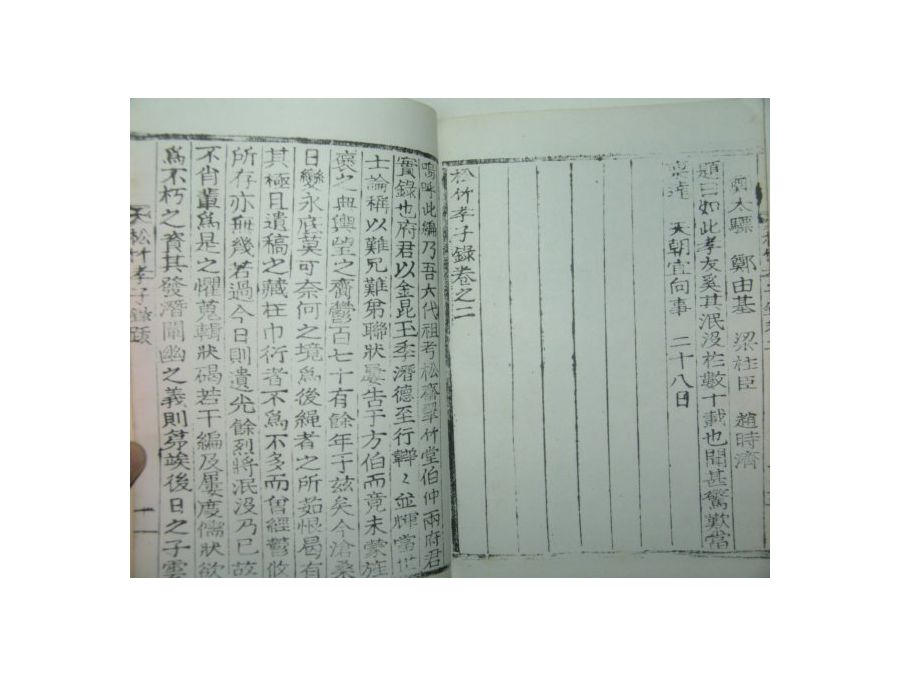 鄭太驃 鄭由基 梁柱臣 趙時濟
題曰如此孝友奚其泯沒於數十載也聞甚驚歎當
天朝宜向事 二十八日
松竹孝子錄卷之二
嗚呼此編乃吾六代祖考松齋翠竹堂伯仲兩府君
實錄也府君以金昆玉季潛德至行韡々並輝當世
士論稱以難兄難弟聯狀屢告于方伯而竟未蒙旌
褒之典輿望之齎鬱百七十有餘年于玆矣今滄桑
日變永底莫可奈何之境爲後繩者之所茹恨曷有
其極且遺稿之藏在巾衍者不爲不多而曾經鬱攸
所存亦無幾若過今日則遺光餘烈將泯沒乃已故
不肖輩爲是之懼蒐輯狀碣若干編及屢度儒狀欲
爲不朽之資其發潛闡幽之義則芴竢後日之子雲
松竹孝子錄跋